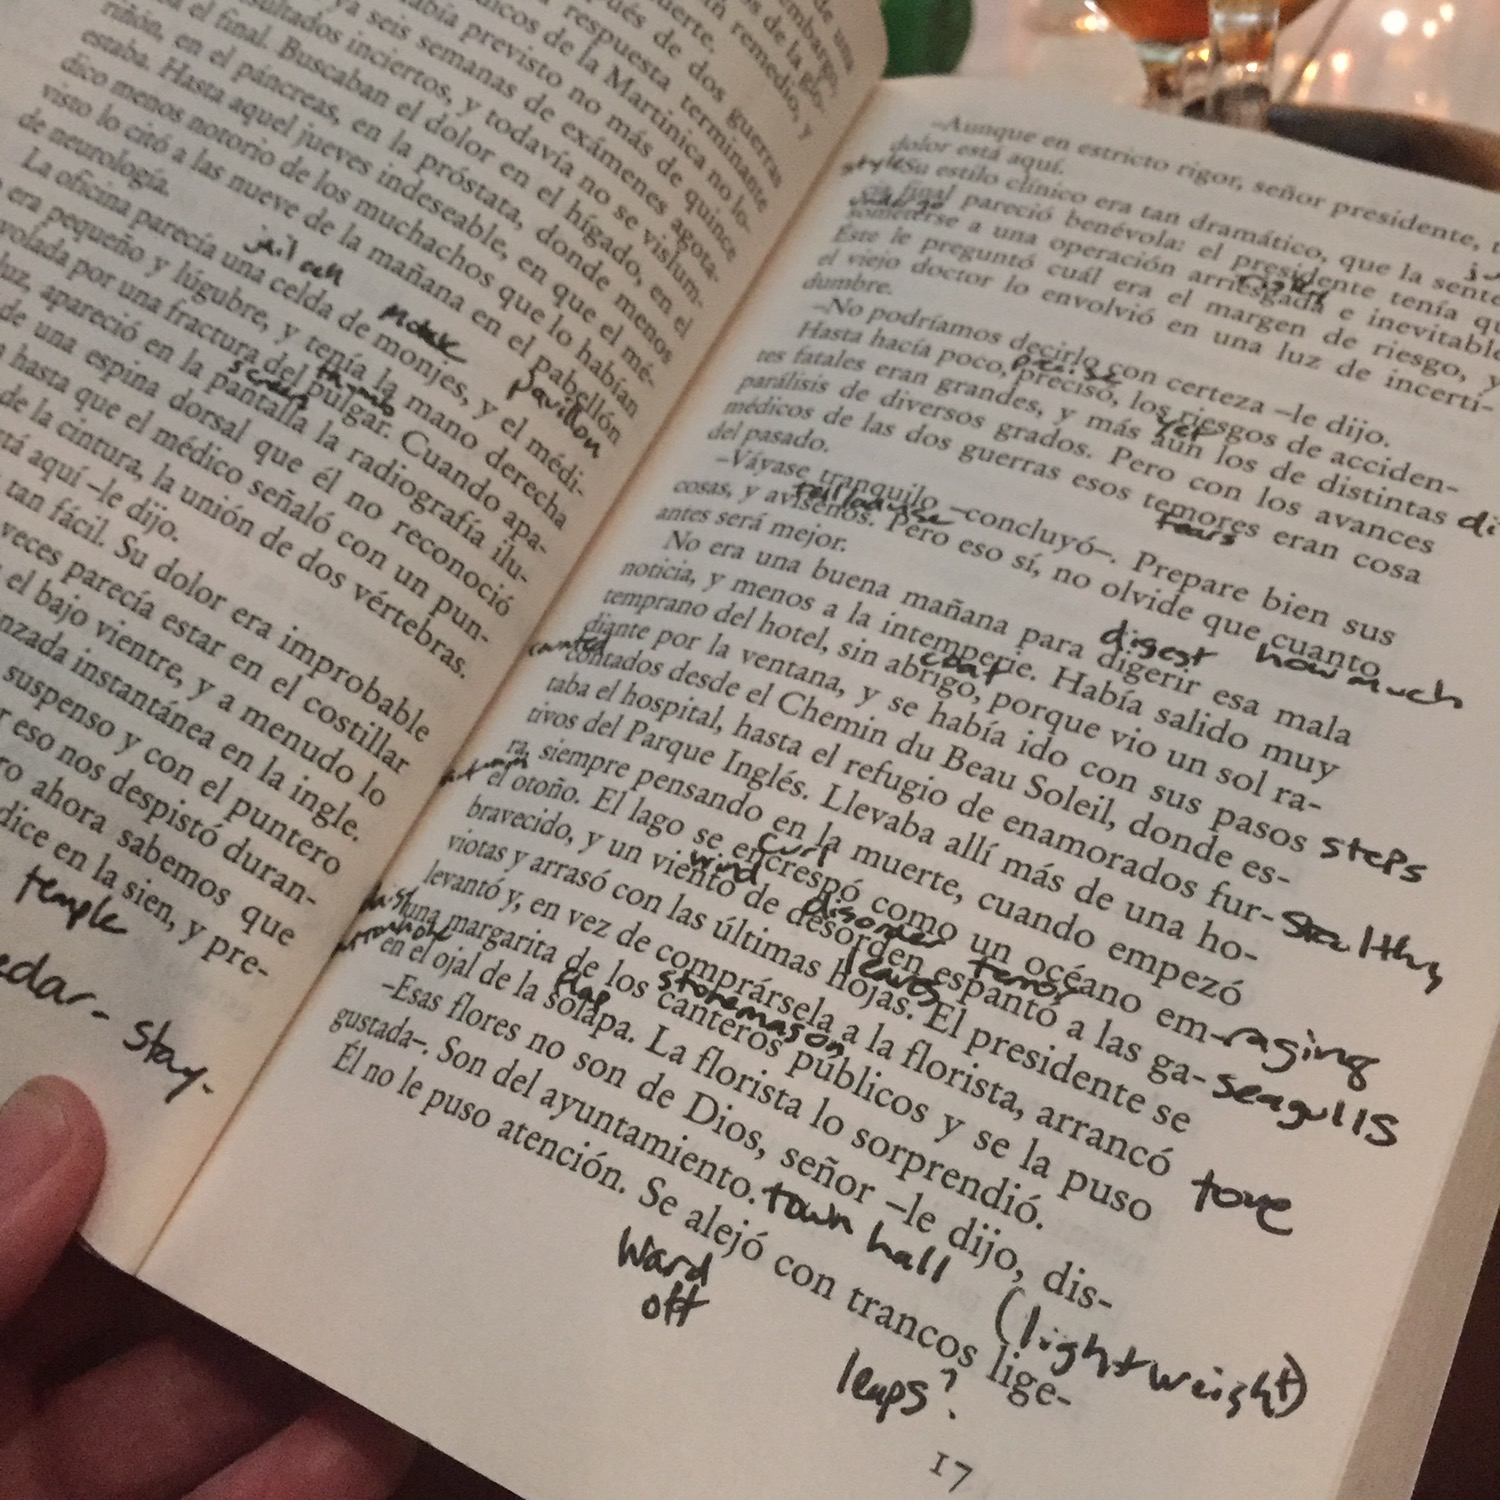 de una
embargo,
os de la glo-
an remedio, y
muerte.
pués de dos guerras
respuesta terminante
dicos de la Martinica no lo-
había previsto no más de quince
ya seis semanas de exámenes agota-
resultados inciertos, y todavía no se vislum-
el final. Buscaban el dolor en el hígado, en el
riñón, en el páncreas, en la próstata, donde menos
estaba. Hasta aquel jueves indeseable, en que el mé-
dico menos notorio de los muchachos que lo habían
visto lo citó a las nueve de la mañana en el pabellón
pavillon
de neurología.
La oficina parecía una celda de monjes, y el médi-
jail cell
monk
era pequeño y lúgubre, y tenía la mano derecha
volada por una fractura del pulgar. Cuando apa-
thumb
luz, apareció en la pantalla la radiografía ilu-
screen
de una espina dorsal que él no reconoció
hasta que el médico señaló con un pun-
de la cintura, la unión de dos vértebras.
aquí –le dijo.
tan fácil. Su dolor era improbable
veces parecía estar en el costillar
el bajo vientre, y a menudo lo
instantánea en la ingle.
suspenso y con el puntero
eso nos despistó duran-
ahora sabemos que
dice en la sien, y pre-
temple
stay-
–Aunque en estricto rigor, señor presidente,
dolor está aquí.
style
Su estilo clínico era tan dramático, que la senten-
cia final pareció benévola: el presidente tenía que
undergo
someterse a una operación arriesgada e inevitable.
risky
Éste le preguntó cuál era el margen de riesgo, y
el viejo doctor lo envolvió en una luz de incerti-
dumbre.
–No podríamos decirlo con certeza –le dijo.
precise
Hasta hacía poco, precisó, los riesgos de acciden-
yet
tes fatales eran grandes, y más aún los de distintas
parálisis de diversos grados. Pero con los avances
médicos de las dos guerras esos temores eran cosa
fears
del pasado.
–Váyase tranquilo –concluyó–. Prepare bien sus
cosas, y avísenos. Pero eso sí, no olvide que cuanto
how much
antes será mejor.
No era una buena mañana para digerir esa mala
digest
noticia, y menos a la intemperie. Había salido muy
temprano del hotel, sin abrigo, porque vio un sol ra-
coat
diante por la ventana, y se había ido con sus pasos
steps
counted
contados desde el Chemin du Beau Soleil, donde es-
taba el hospital, hasta el refugio de enamorados fur-
tivos del Parque Inglés. Llevaba allí más de una ho-
ra, siempre pensando en la muerte, cuando empezó
el otoño. El lago se encrespó como un océano em-
raging
curl
bravecido, y un viento de desorden espantó a las ga-
wind
disorder
terror
seagulls
viotas y arrasó con las últimas hojas. El presidente se
leaves
levantó y, en vez de comprársela a la florista, arrancó
tore
una margarita de los canteros públicos y se la puso
stonemason
en el ojal de la solapa. La florista lo sorprendió.
flap
–Esas flores no son de Dios, señor –le dijo, dis-
gustada–. Son del ayuntamiento.
town hall
Él no le puso atención. Se alejó con trancos lige-
ward
off
(lightweight)
leaps?
17